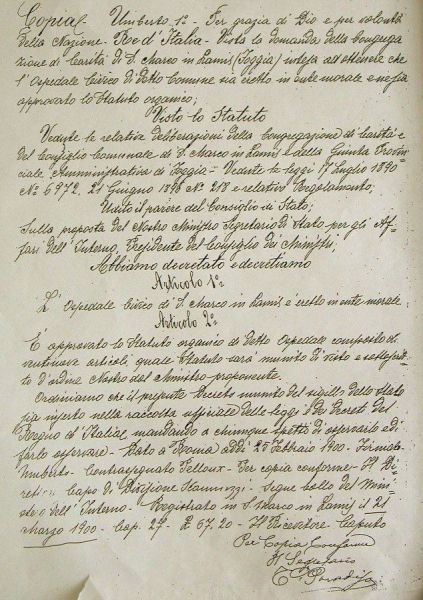 Copia - Umberto 1º - Per grazia di Dio e per volontà
della Nazione - Re d'Italia - Vista la domanda della Congrega
zione di Carità di S. Marco in Lamis (Foggia) intesa ad ottenere che
l'Ospedale Civico di detto Comune sia eretto in ente morale e ne sia
approvato lo Statuto organico;
Visto lo Statuto
Vedute le relative deliberazioni della Congregazione di Carità e
del Consiglio Comunale di S. Marco in Lamis e della Giunta Provin
ciale Amministrativa di Foggia - Vedute le leggi 17 Luglio 1890
Nº 6972, 21 Giugno 1896 Nº 218 e relativo Regolamento;
Udito il parere del Consiglio di Stato;
Sulla proposta del Nostro Ministro Segretario di Stato per gli Af-
fari dell'Interno, Presidente del Consiglio dei Ministri;
Abbiamo decretato e decretiamo
Articolo 1º
L'Ospedale Civico di S. Marco in Lamis è eretto in ente morale.
Articolo 2º
È approvato lo Statuto organico di detto Ospedale composto di
ventinove articoli, quale Statuto sarà munito di visto e sottoscrit
to d'ordine Nostro dal Ministro proponente.
Ordiniamo che il presente Decreto munito del sigillo dello Stato
sia inserto nella raccolta ufficiale delle leggi e dei Decreti del
Regno d'Italia mandando a chiunque spetti di osservarlo e di
farlo osservare - Dato a Roma addì 25 Febbraio 1900 - Firmato
Umberto - Contrassegnato Pelloux - Per copia conforme - Il Di
rettore Capo di Divisione - Segue bollo del Mini
stero dell'Interno - Registrato in S. Marco in Lamis il 21
Marzo 1900 - Cap. 27 - £ 67.20 - Il Ricevitore Caputo
Per Copia Conforme
Il Segretario